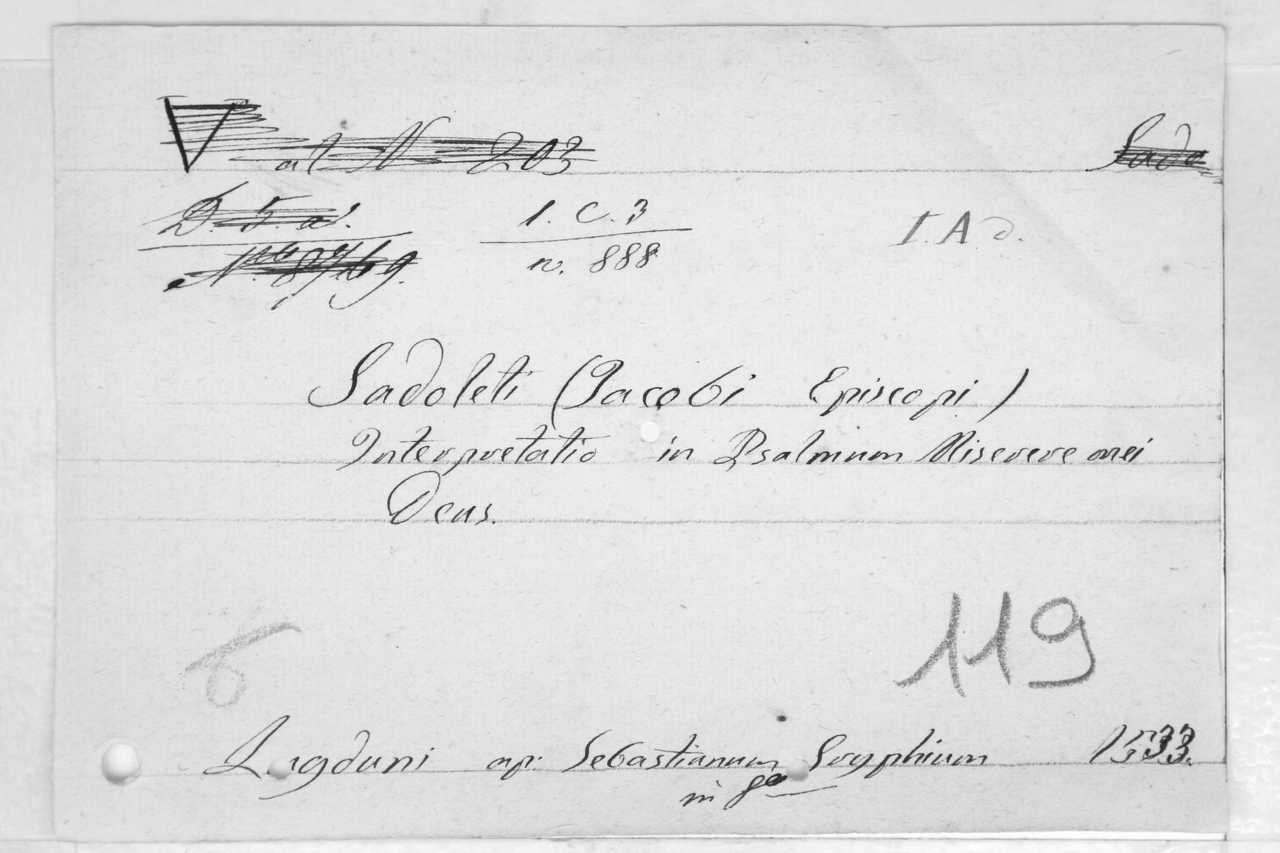 at N 203
Sado
D 5. a'.
1. C. 3
n. 888
I. A d.
Sadoleti (Jacobi Episcopi)
Interpretatio in Psalmum Miserere mei
Deus.
119
6
Lugduni ap: Sebastianum Gryphium 1533.
in 8º